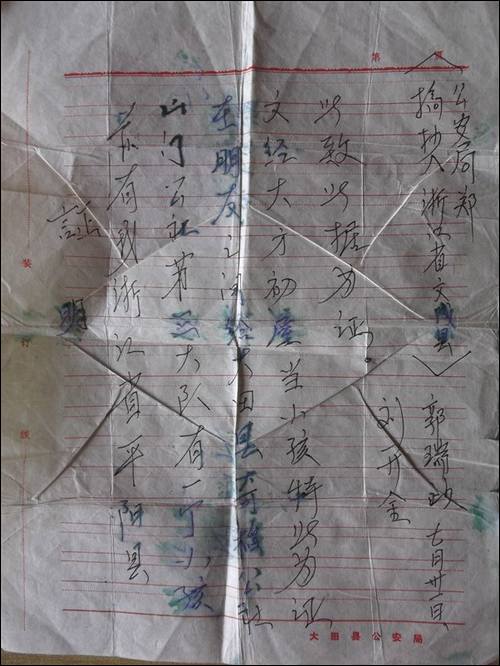 第 页
証 明
兹有我浙江省平阳县
山门公社第三大队有一个小孩
在朋友之间给大田县奇韬公社
文经大方初屋当小孩特此为证
此致此据为证。
刘开金
摘抄 浙江省文成县) 郭瑞政 七月廿一日
公安局郑
装 订 线
大田县公安局